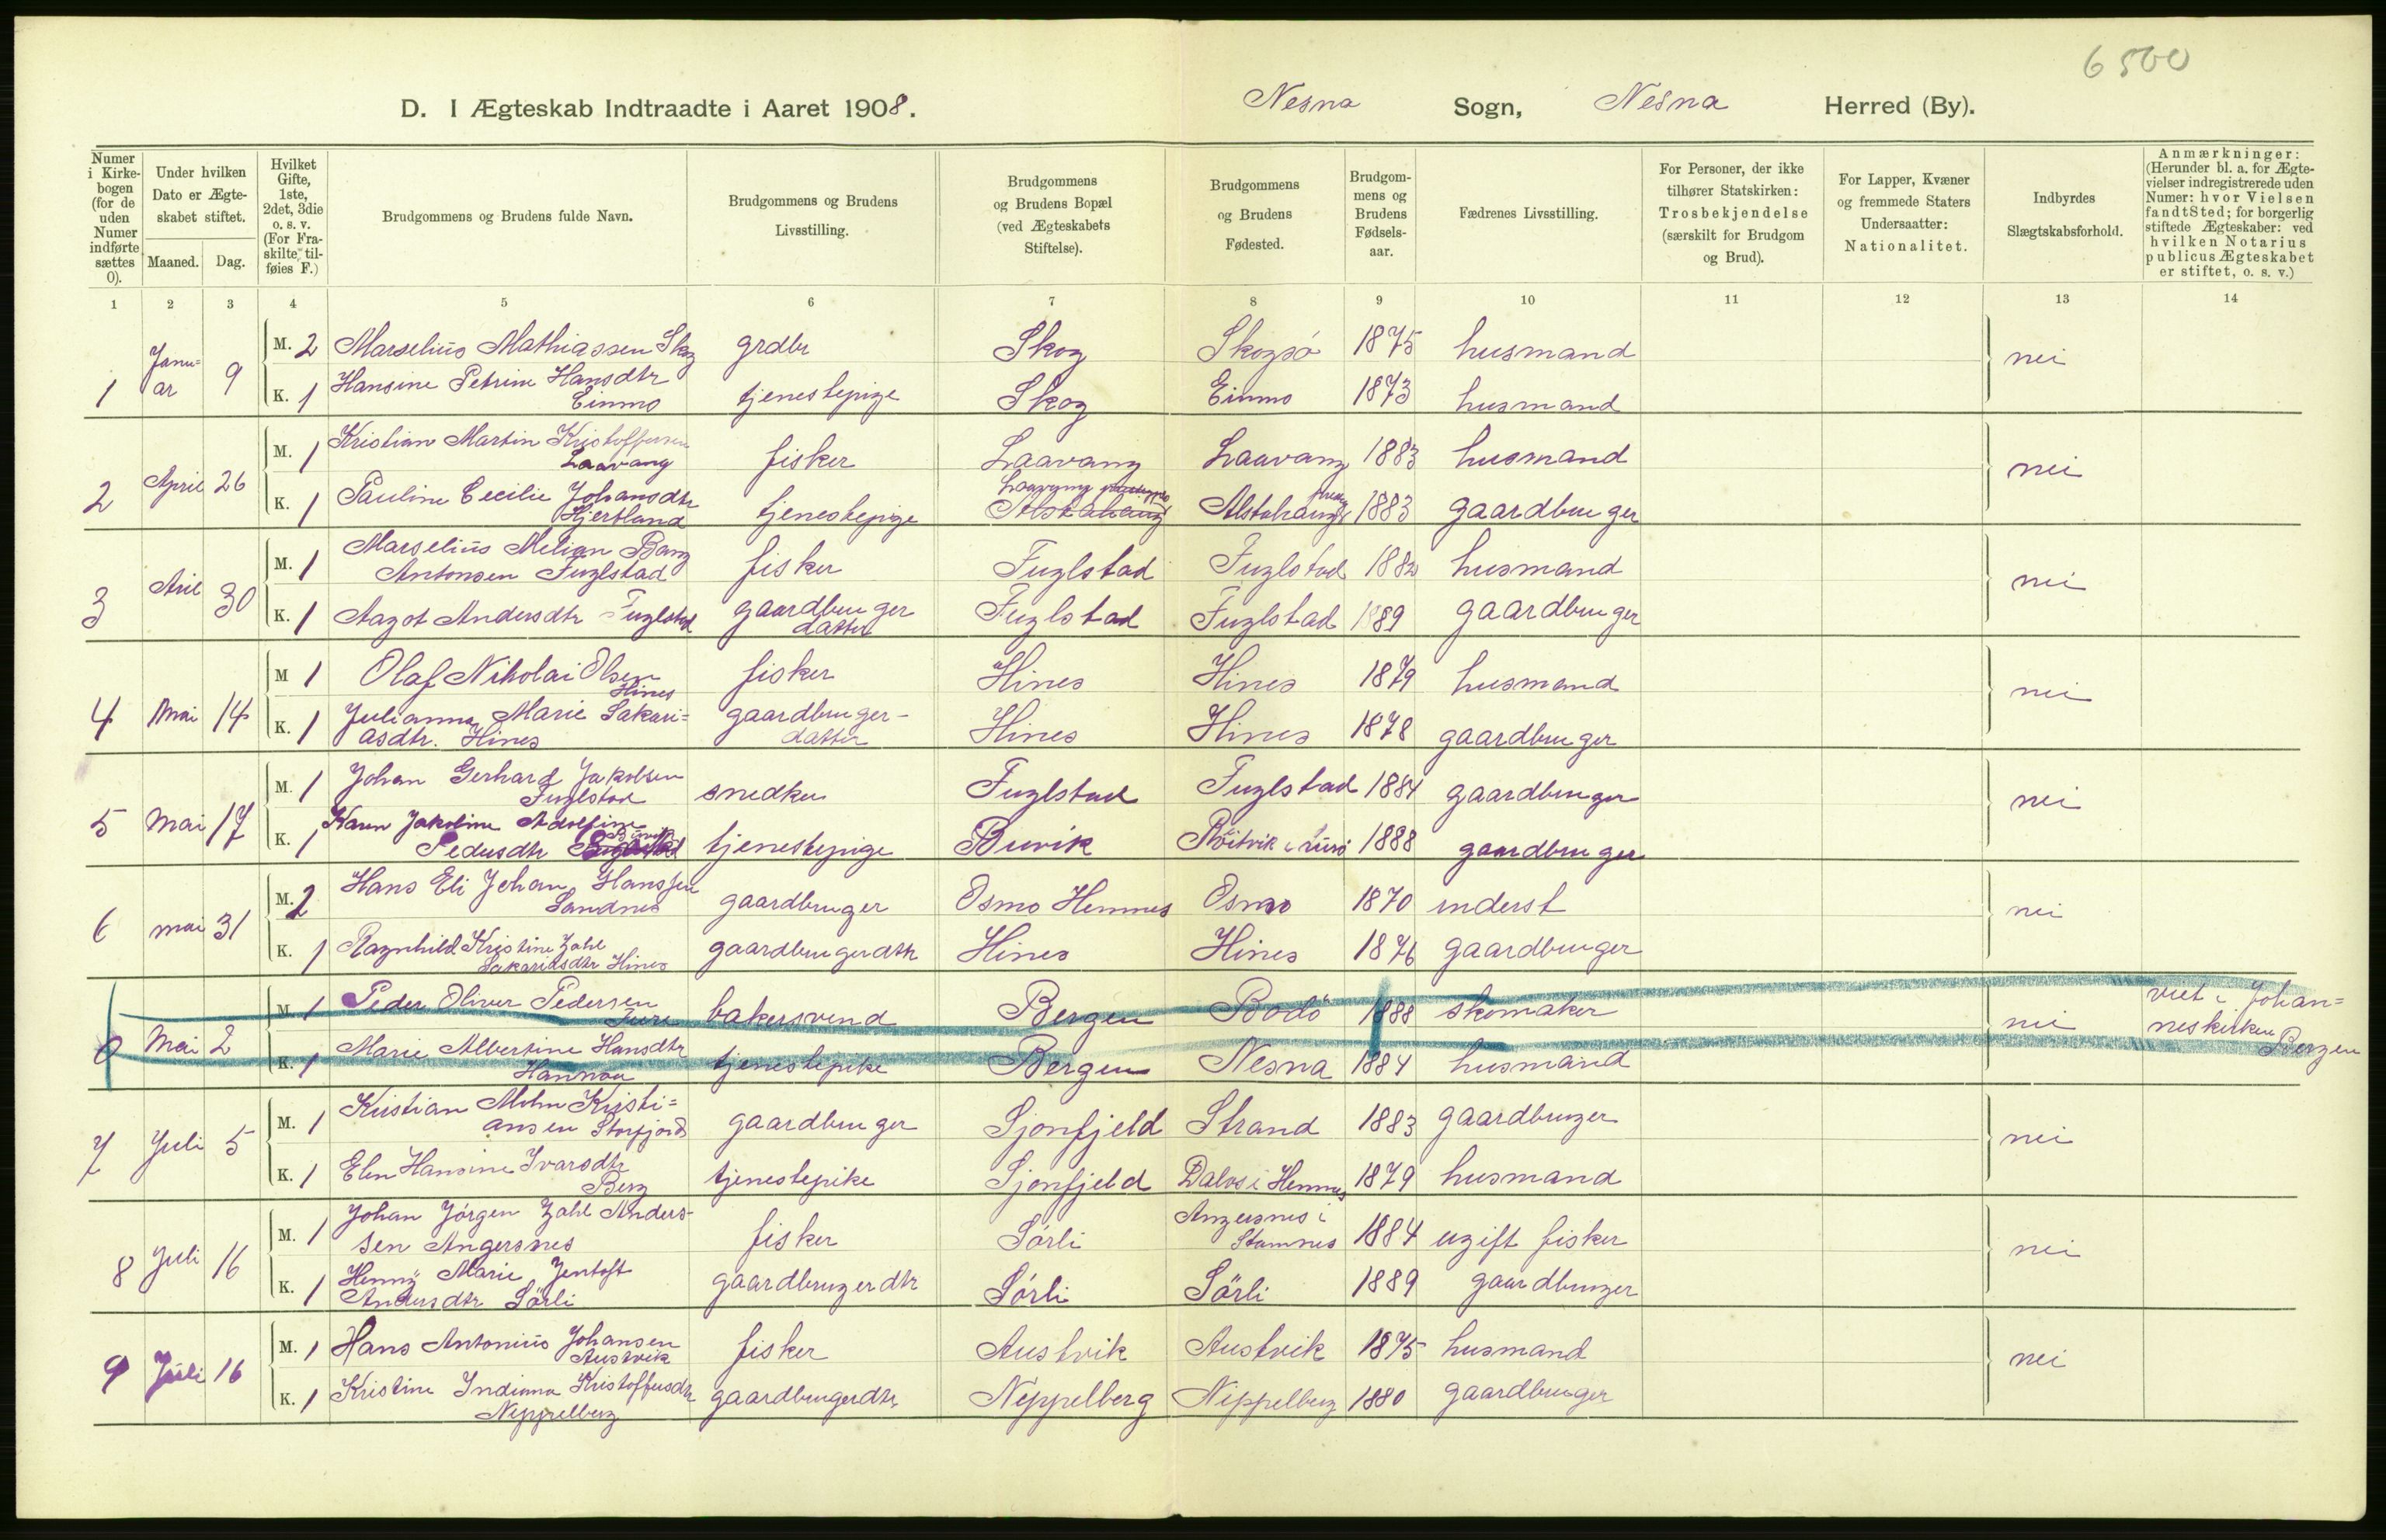 6500
D. I Ægteskab Indtraadte i Aaret 1908. Nesna Sogn, Nesna Herred (By).
Numer i Kirke-bogen (for de uden Numer indførte sættes 0).
Under hvilken Dato er Ægte-skabet stiftet.
Maaned. Dag.
Hvilket Gifte, 1ste, 2det, 3die o. s. v. (For Fra-skilte, til-føies F.)
Brudgommens og Brudens fulde Navn.
Brudgommens og Brudens Livsstilling.
Brudgommens og Brudens Bopæl (ved Ægteskabets Stiftelse).
Brudgommens og Brudens Fødested.
Brudgom-mens og Brudens Fødsels-aar.
Fædrenes Livsstilling.
For Personer, der ikke tilhører Statskirken: Trosbekjendelse (særskilt for Brudgom og Brud).
For Lapper, Kvæner og fremmede Staters Undersaatter: Nationalitet.
Indbyrdes Slægtskabsforhold.
Anmærkninger: (Herunder bl. a. for Ægte-vielser indregistrerede uden Numer: hvor Vielsen fandt Sted; for borgerlig stiftede Ægteskaber: ved hvilken Notarius publicus Ægteskabet er stiftet, o. s. v.)
1 2 3 4 5 6 7 8 9 10 11 12 13 14
1 Janu=ar 9 M. 2 Marselius Mathiassen Skog grdbr Skog Skogsö 1875 husmand nei
K. 1 Hansine Petrine Hansdtr Einmo tjenestepige Skog Einmo 1873 husmand
2 April 26 M. 1 Kristian Martin Kristoffersen Laavang fisker Laavang Laavang 1883 husmand nei
K. 1 Pauline Cecilie Johansdtr Hjertland tjenestepige Laavang Alstahaug Alstahaug 1883 gaardbruger
3 Aril 30 M. 1 Marselius Melian Bang Antonsen Fuglstad fisker Fuglstad Fuglstad 1882 husmand nei
K. 1 Aagot Andersdtr Fuglstad gaardbruger datter Fuglstad Fuglstad 1889 gaardbruger
4 Mai 14 M 1 Olaf Nikolai Olsen Hines fisker Hines Hines 1879 husmand nei
K. 1 Julianna Marie Sakari=asdtr. Hines gaardbruger-datter Hines Hines 1878 gaardbruger
5 Mai 17 M. 1 Johan Gerhard Jakobsen Fuglstad snedker Fuglstad Fuglstad 1884 gaardbruger nei
K. 1 Karen Jakobine Adolfine Pedersdtr Buvik tjenestepige Buvik 1888 gaardbruger
6 mai 31 M. 2 Hans Eli Johan Hanssen Sandnes gaardbruger Osmo Hemnes Osmo 1870 inderst nei
K. 1 Ragnhild Kristine Zahl Sakariasdtr Hines gaardbrugerdtr Hines Hines 1876 gaardbruger
0 Mai 2 M. 1 Peder Oliver Pedersen Fure bakersvend Bergen Bodö 1888 skomaker nei viet i Johan=neskirken Bergen
K. 1 Marie Albertine Hansdtr tjenestepike Bergen Nesna 1884 husmand
7 Juli 5 M. 1 Kristian Kristi=ansen Storfjord gaardbruger Sjonfjeld Strand 1883 gaardbruger nei
K. 1 Elen Hansine Ivarsdtr Berg tjenestepike Sjonfjeld Dalos i Hemnes 1879 husmand
8 Juli 16 M. 1 Johan Jörgen Zahl Anders-sen Angersnes fisker Sörli Angersnes i Stamnes 1884 ugift fisker nei
K. 1 Henny Marie Jentoft Andersdtr Sörli gaardbrugerdtr Sörli Sörli 1889 gaardbruger
9 Juli 16 M. 1 Hans Antonius Johansen Austvik fisker Austvik Austvik 1875 husmand nei
K. 1 Kristine Indianna Kristoffersdtr Neppelberg gaardbrugerdtr Neppelberg Nippelberg 1880 gaardbruger